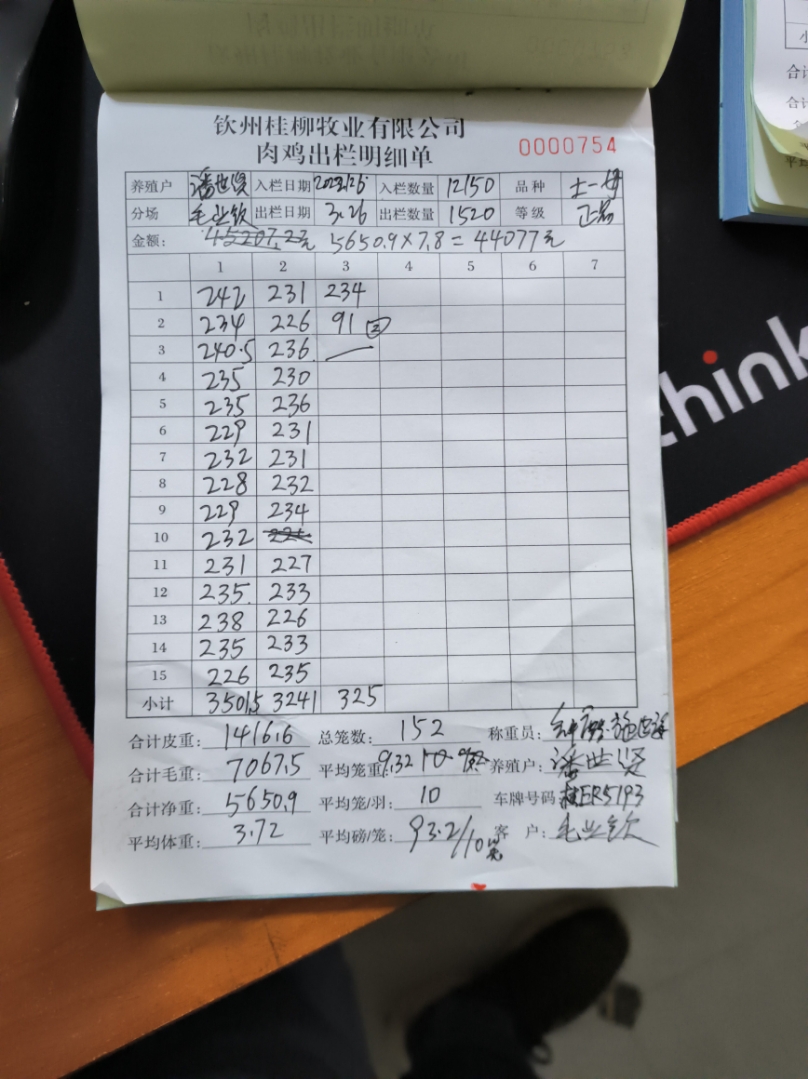 钦州桂柳牧业有限公司
肉鸡出栏明细单 0000754
养殖户 潘世贤 入栏日期 入栏数量 12150 品种 土一号
分场 毛业钦 出栏日期 3.26 出栏数量 1520 等级 正品
金额: 45207.23元 5650.9×7.8=44077元
1 2 3 4 5 6 7
1 242 231 234
2 234 226 91 ②
3 240.5 236
4 235 230
5 235 236
6 229 231
7 232 231
8 228 232
9 229 234
10 232
11 231 227
12 235 233
13 238 226
14 235 233
15 226 235
小计 3501.5 3241 325
合计皮重: 1416.6 总笼数: 152 称重员:
合计毛重: 7067.5 平均笼重: 9.32 养殖户: 潘世贤
合计净重: 5650.9 平均笼/羽: 10 车牌号码: ER5193
平均体重: 3.72 平均磅/笼: 93.2/10 客 户: 毛业钦
think
合计
合计